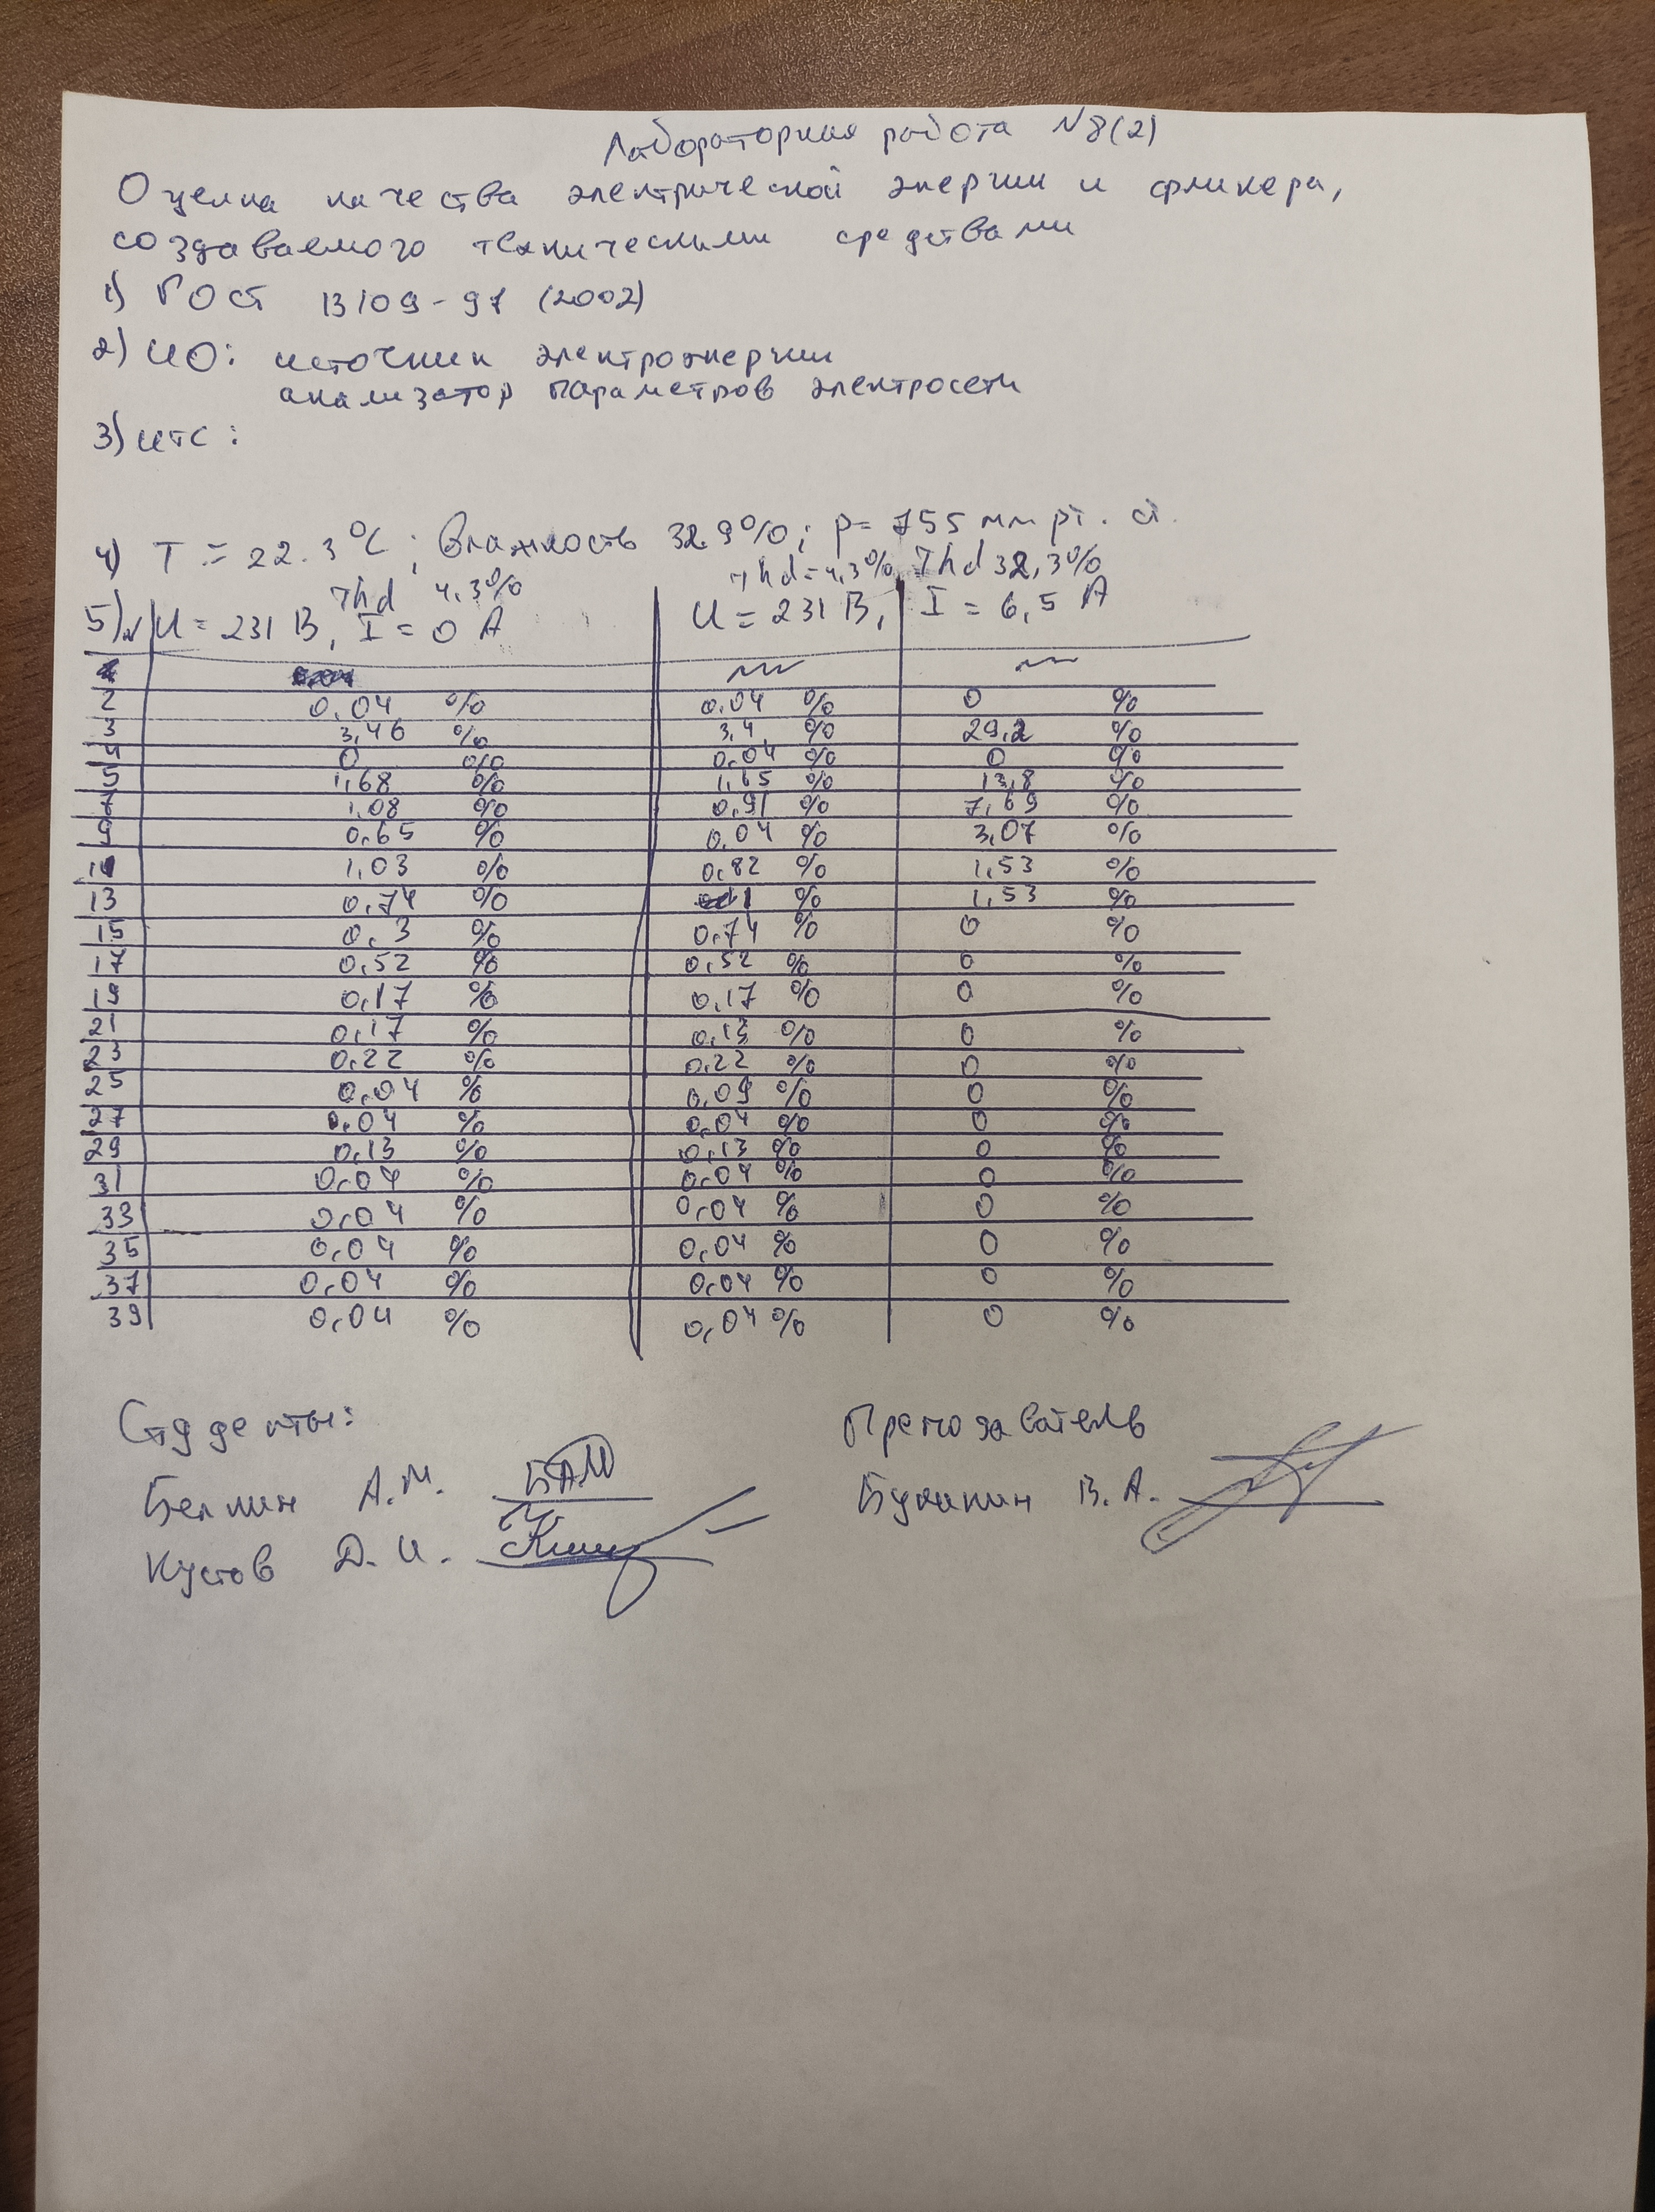 Лабораторная работа №8(2)
Оценка качества электрической энергии и фликера,
создаваемого техническими средствами
1) ГОСТ 13109-97 (2002)
2) ИО: источник электроэнергии
анализатор параметров электросети
3) ИТС:
4) T = 22.3°C; Влажность 32.9%; p= 755 мм рт. ст.
Thd 4,3% Thd=4,3% Thd 32,3%
5) N U = 231 В, I = 0 А U = 231 В, I = 6,5 А
2 0,04 % 0,04 % 0 %
3 3,46 % 3,4 % 29,2 %
4 0 % 0,04 % 0 %
5 1,68 % 1,65 % 13,8 %
7 1,08 % 0,91 % 7,69 %
9 0,65 % 0,04 % 3,07 %
11 1,03 % 0,82 % 1,53 %
13 0,74 % % 1,53 %
15 0,3 % 0,74 % 0 %
17 0,52 % 0,52 % 0 %
19 0,17 % 0,17 % 0 %
21 0,17 % 0,13 % 0 %
23 0,22 % 0,22 % 0 %
25 0,04 % 0,09 % 0 %
27 0,04 % 0,04 % 0 %
29 0,13 % 0,13 % 0 %
31 0,04 % 0,04 % 0 %
33 0,04 % 0,04 % 0 %
35 0,04 % 0,04 % 0 %
37 0,04 % 0,04 % 0 %
39 0,04 % 0,04 % 0 %
Студенты: Преподаватель
Белкин А.М. БАМ Букакин В.А.
Кустов Д.И.